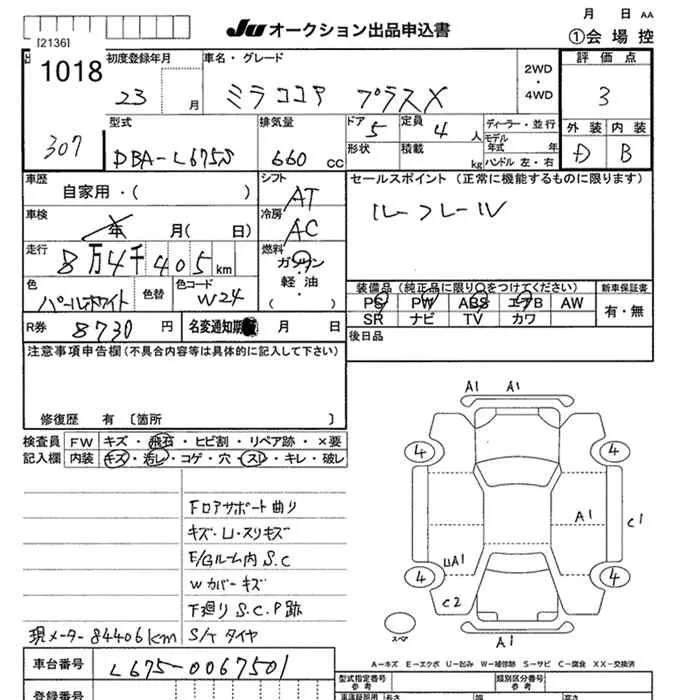 Ju オークション出品申込書
月 日 AA
①会場控
[2136]
1018
307
初度登録年月
23 月
車名・グレード
ミラココア プラスX
2WD
・
4WD
評価点
3
外装 内装
D B
型式
DBA-L675S
排気量
660 cc
ドア 5
定員 4 人
形状
積載 kg
ディーラー・並行
モデル年式 年
ハンドル 左・右
車歴
自家用・( )
シフト
AT
セールスポイント (正常に機能するものに限ります)
ルーフレール
車検
年 月( 日)
冷房
AC
走行
8万4千405km
燃料
ガソリン
・
軽油
( )
色
パールホワイト
色替
色コード
W24
装備品 (純正品に限り○をつけてください)
新車保証書
PS PW ABS エアB AW
SR ナビ TV カワ
有・無
R券 8730 円
名変通知期 月 日
後日品
注意事項申告欄 (不具合内容等は具体的に記入して下さい)
修復歴 有 〔箇所 〕
検査員記入欄
FW キズ・飛石・ヒビ割・リペア跡・×要
内装 キズ・汚レ・コゲ・穴・スレ・キレ・破レ
Fロアサポート曲り
キズ・U・スリキズ
E/Gルーム内 S.C
Wカバーキズ
下廻り S.C.P跡
現メーター 84406km
S/T タイヤ
A1 A1
4 4
A1
C1
UA1
4 4
C2
スペア
A1
A−キズ E−エクボ U−凹み W−補修跡 S−サビ C−腐食 XX−交換済
車台番号
L675-0067501
型式指定番号
参考
類別区分番号
参考
登録番号
長さ
幅
高さ